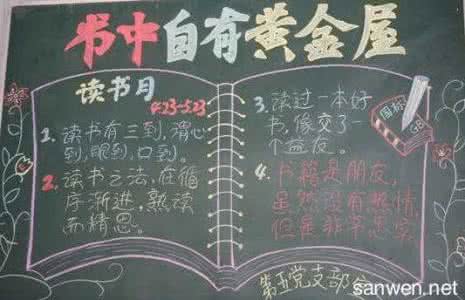 书中自有黄金屋
读书月
4.23-5.23
1. 读书有三到,谓心
到,眼到,口到。
2. 读书之法,在循
序渐进,熟读
而精思。
3. 读过一本好
书,像交了一
个益友。
4. 书籍是朋友,
虽然没有热情,
但是非常忠实
国标
GB
第五党支部
sanwen.net